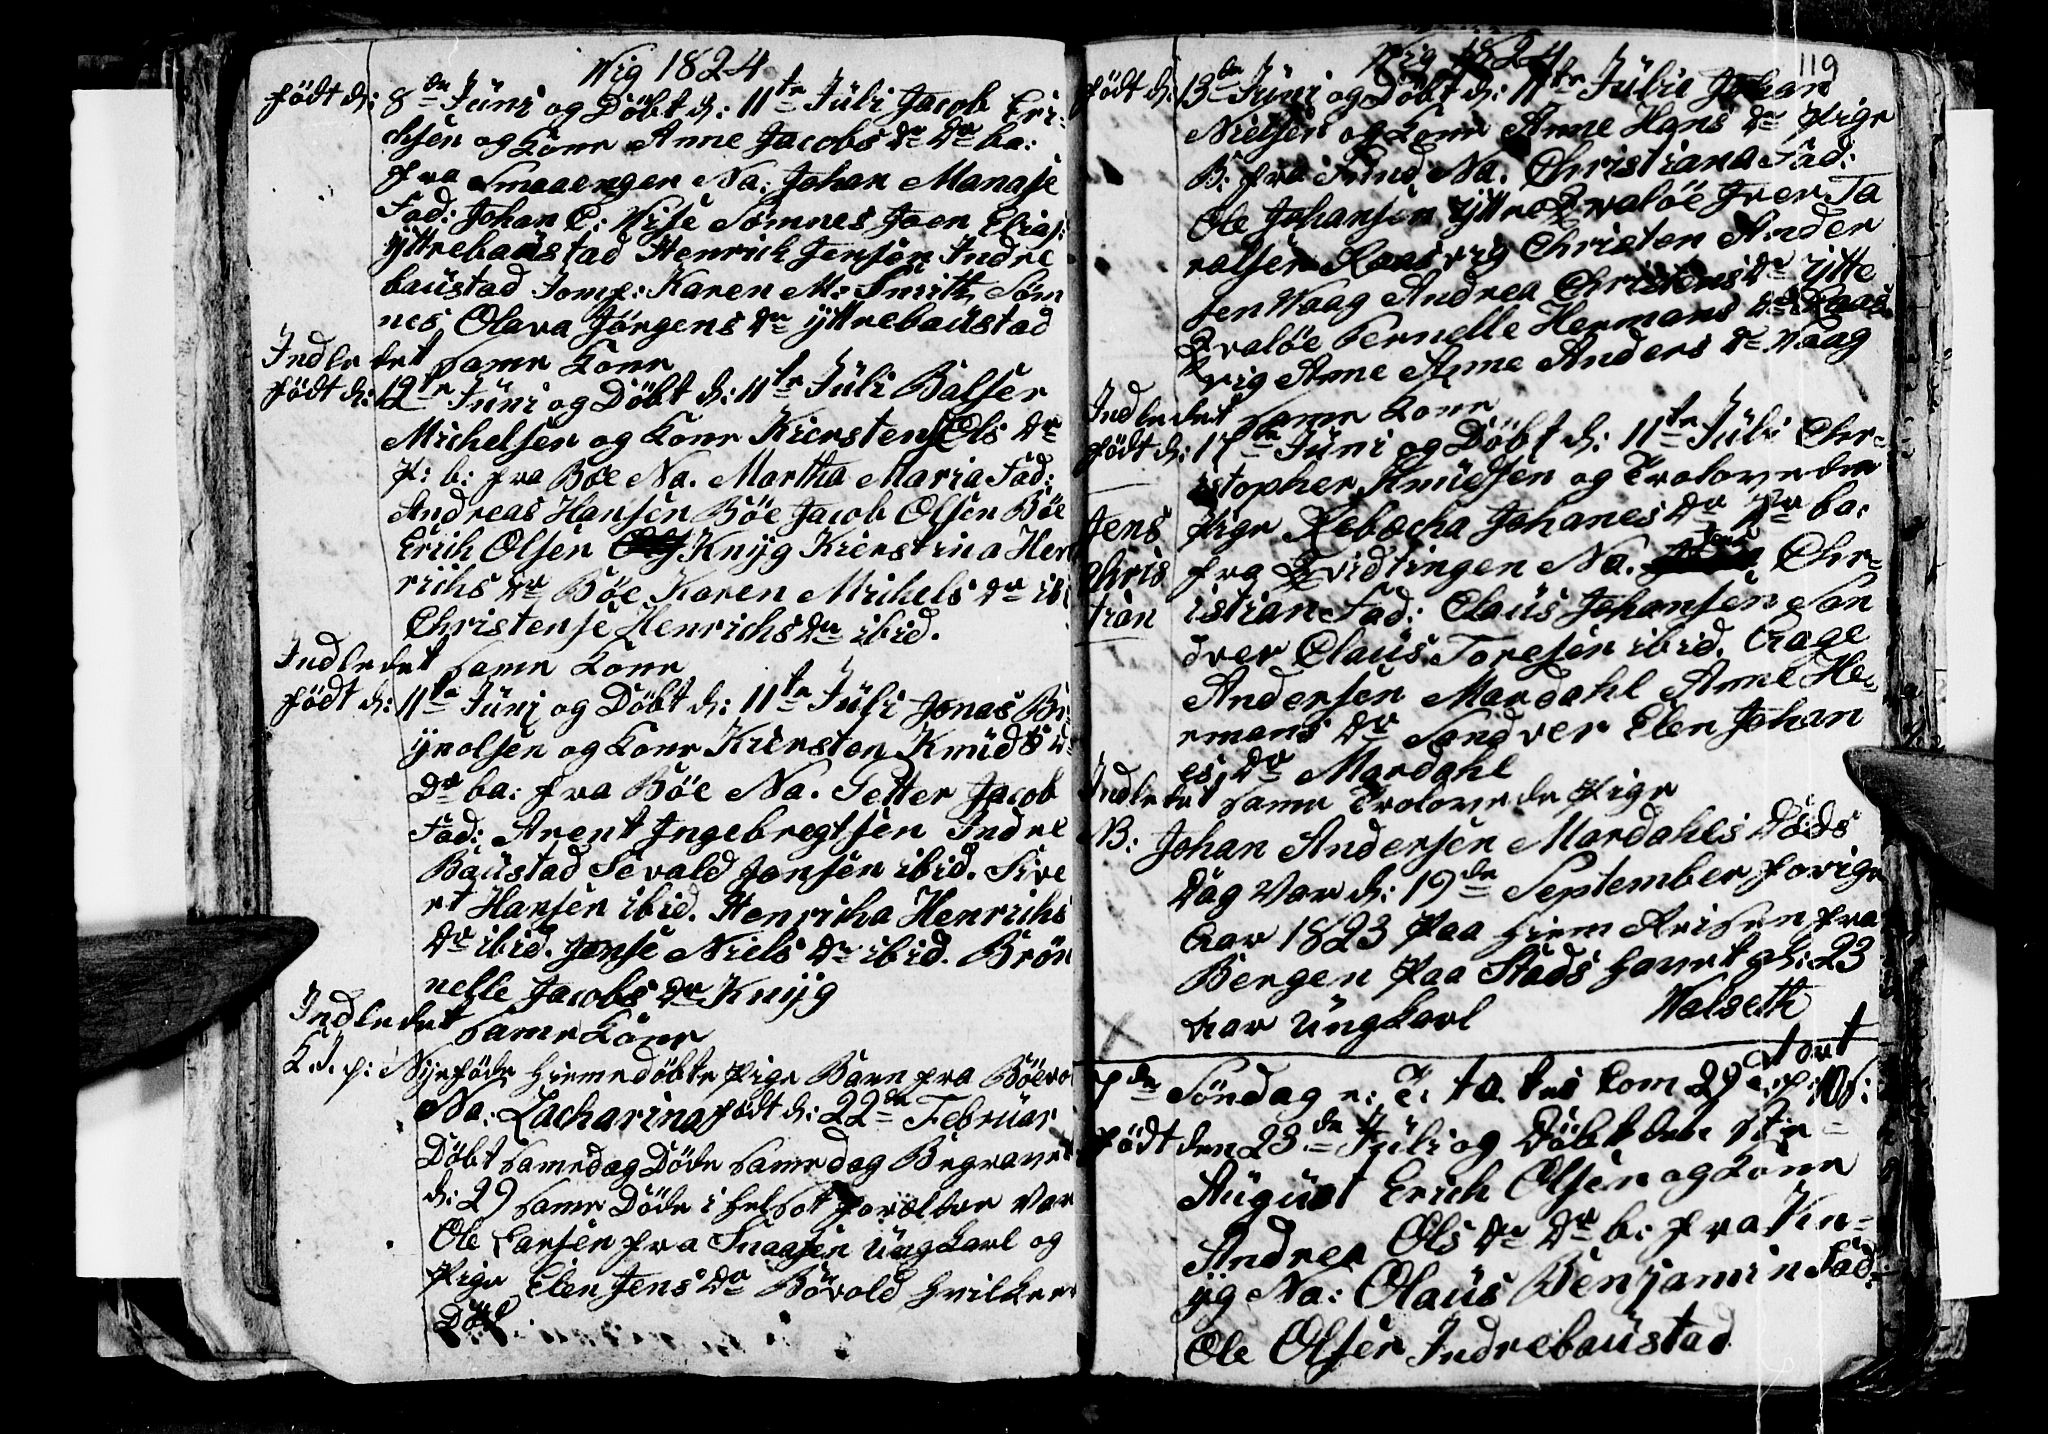 Wig 1824
født d: 8de Jüni og Döbt d: 11te Jüli Jacob Eri-
chsen og Kone Anne Jacobs Dr Dr ba:
fra Smaaengen Na: Johan Manase
Fad: Johan C: Wise Sömnes Joen Elias:
ÿttrebaüstad Henrich Jensen Indre
baüstad Jomf: Karen M: Smith Söm
nes, Olava Jörgens Dr ÿttrebaüstad
Indledet same Kone
født d: 12te Jüni og Döbt d: 11te Jüli Balser
Michelsen og Kone Kiersten Ols Dr
p: b: fra Böe Na. Martha Maria Fad:
Andreas Hansen Böe Jacob Olsen Böe
Erich Olsen Knÿg Kierstina Hen
richs Dr Böe Karen Michels Dr ibi
Christense Henrichs Dr ibid.
Indledet same Kone
født d: 11te Jüni og Döbt d: 11te Jüli Jonas Br
ÿnolsen og Kone Kiersten Knüds D
Dr ba: fra Böe Na. Petter Jacob
Fad: Arent Ingebregtsen Indre
Baüstad Sevald Jonsen ibid. Sive
rt Hansen ibid. Henricha Henrichs
Dr ibid. Jense Niels Dr ibid. Brön
nelle Jacobs Dr Knÿg
Indledet same Kone
K. J. p: Nÿeföde Hiemedöbte Pige Barn fra Böevo
Na: Zacharina født d: 22de Febrüar
Döbt same dag Döde same dag Begravet
d: 29 same Döde i Helsot forældre var
Ole Larsen fra Snaasen üngkarl og
Pige Elen Jens Dr Bövold Hvilken
Döbt
119
Wig 1824
født d: 13de Jüni og Döbt d: 11te Jüli Johan
Nielsen og Kone Anne Hans Dr Pige
B: fra Sund Na. Christiana Fad:
Ole Johansen ÿttre Qvalöe Iver Ta
ralsen Raasvig Christen Ander
sen Waag Andrea Christens Dr ÿtte
Qvalöe Pernelle Hermans Dr Raas
vig Anne Anne Anders Dr Waag
Indledet same Kone
født d: 17de Jüni og Döbt d: 11te Jüli Chr-
istopher Knüdsen og Trolovede
Pige Rebecha Johanes Dr Dr ba:
fra Qvidtingen Na. Jens Chr-
Jens
Chris
tian
istian Fad: Claüs Johansen San
dver Claüs Toresen ibid. Aage
Andersen Mardahl Anne He-
rmans Dr Sandver Elen Johan
es Dr Mardahl
Indledet same Trolovede Pige
NB: Johan Andersen Mardahls Döds
Dag var d: 19de September forige
Aar 1823 Paa Hiem Reisen fra
Bergen Paa Stads Havet gl: 23
Aar üngkarl Walseth
7de Söndag n: T: ta tes kom 29 d: p: 105:
tort
født den 23de Jüli og Döbt den 1te
Aügüst Erich Olsen og Kone
Andrea Ols Dr Dr b: fra Kn-
ÿg Na: Olaüs Benjamin Fad:
Ole Olsen Indrebaüstad